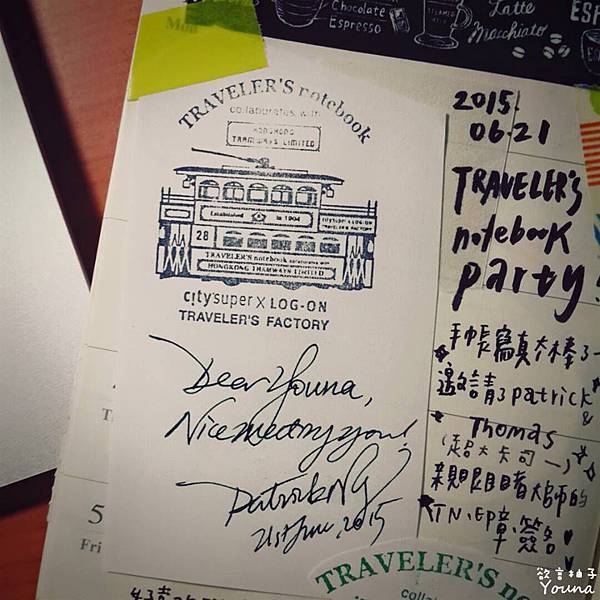 Chocolate
Espresso
STEAMED
Latte
Macchiato
ESP
Mon
TRAVELER'S notebook
collaborates with
HONGKONG
TRAMWAYS LIMITED
Established in 1904
city'super x LOG-ON
TRAVELER'S FACTORY
28
TRAVELER'S notebook collaborates with
HONGKONG TRAMWAYS LIMITED
city'super x LOG-ON
TRAVELER'S FACTORY
Dear Youna,
Nice meeting you!
Patrick Ng
21st June, 2015
2015.
06.21
TRAVELER'S
notebook
party!
邀請了patrick
&
Thomas
(超大卡司一)
親眼目睹大師的
TN、EP章、簽名
5
Fri
TRAVELER'S note
colla
欲言柚子
Youna